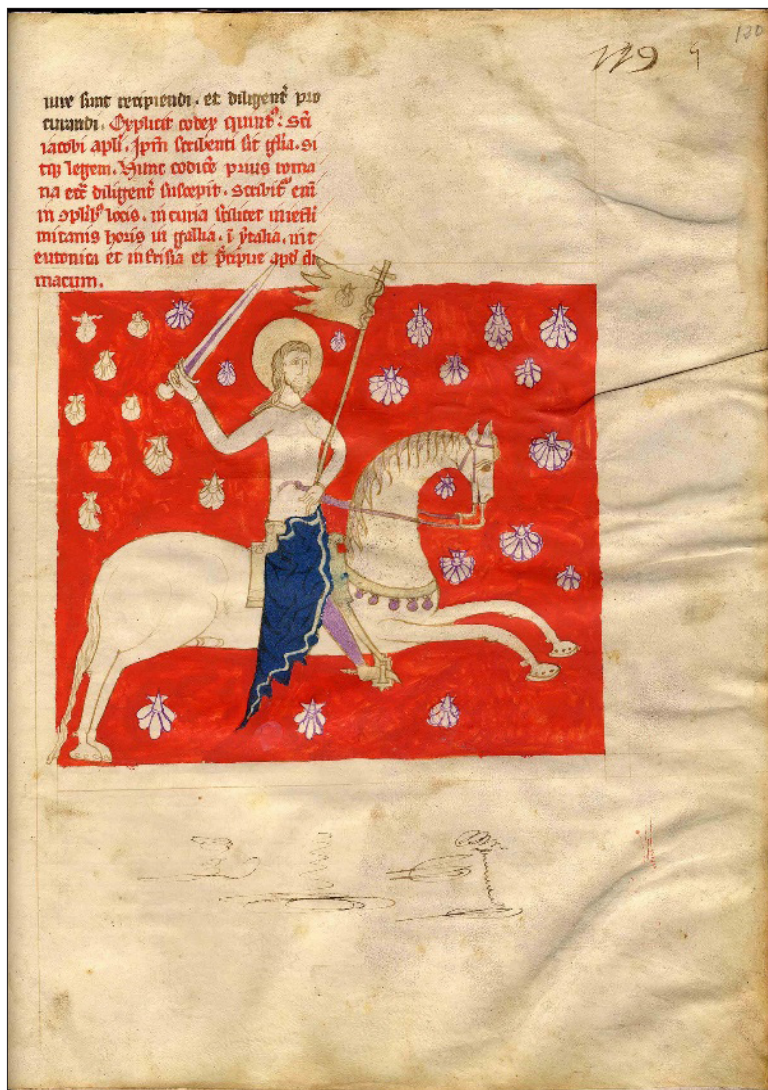 119
120
iure sunt recipiendi. et diligent̄ pro
curandi. Explicit codex quint᷒. sc̄i
iacobi apl̄i. Ip̄m scribenti sit gl̄ia. si
tq; legenti. Hunc codicē prius roma
na ecc̄ diligent̄ suscepit. scribit᷒ enī
in locis. in curia scilicet
mitanis horis in gallia. ī ytalia. in t
eutonica et in frisia et p̄cipue apd̄ clu
niacum.